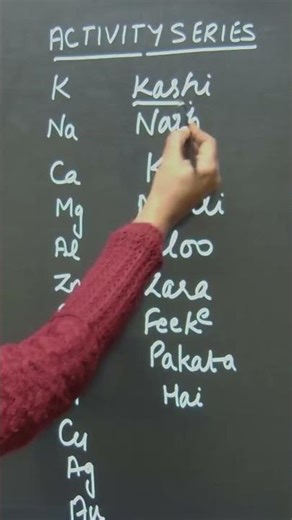 ACTIVITY SERIES
K Kashi
Na
Ca
Mg
Al
Zn Zara
Feeke
Pakata
Hai
Cu
Ag
Au